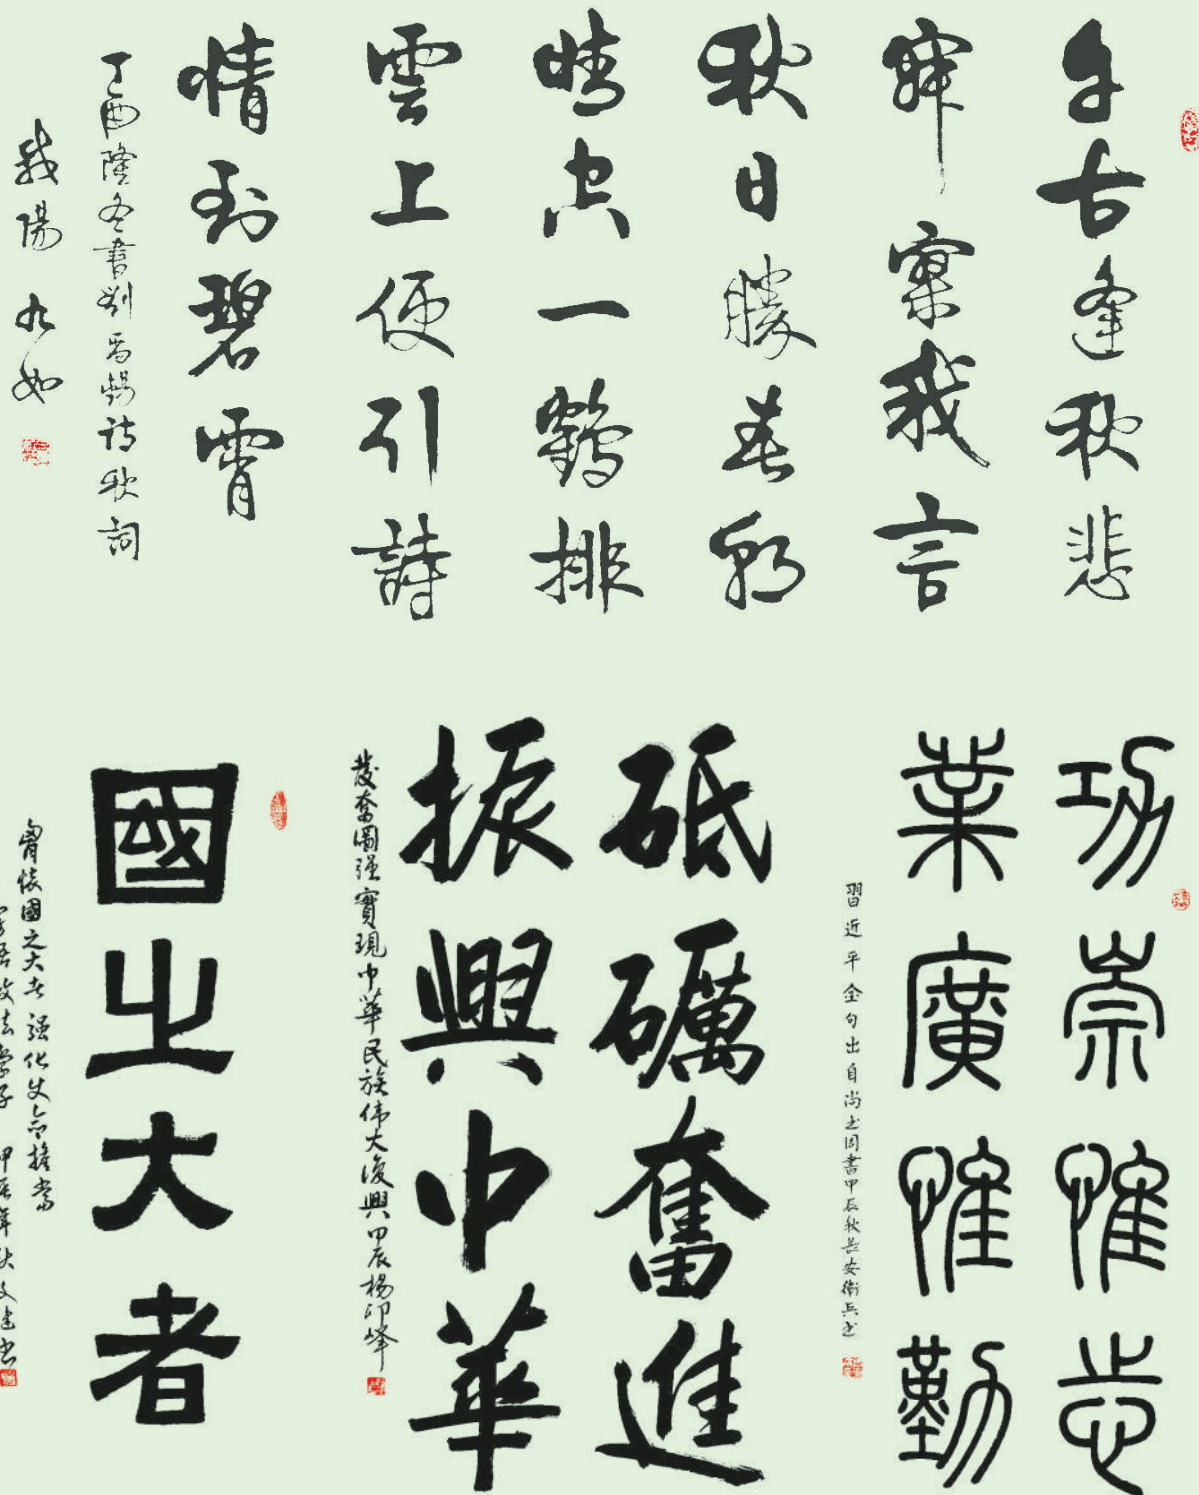 自古逢秋悲
寂寥我言
秋日勝春朝
晴空一鶴排
雲上便引詩
情到碧霄
丁酉隆冬書劉禹錫詩秋詞
陽 九如
功崇惟志
業廣惟勤
習近平金句出自尚书周書甲辰秋長安衛兵书
砥礪奮進
振興中華
發奮圖强實現中華民族伟大復興甲辰楊印峰
國之大者
胸懷國之大者强化使命擔當
政法學子 甲辰年秋